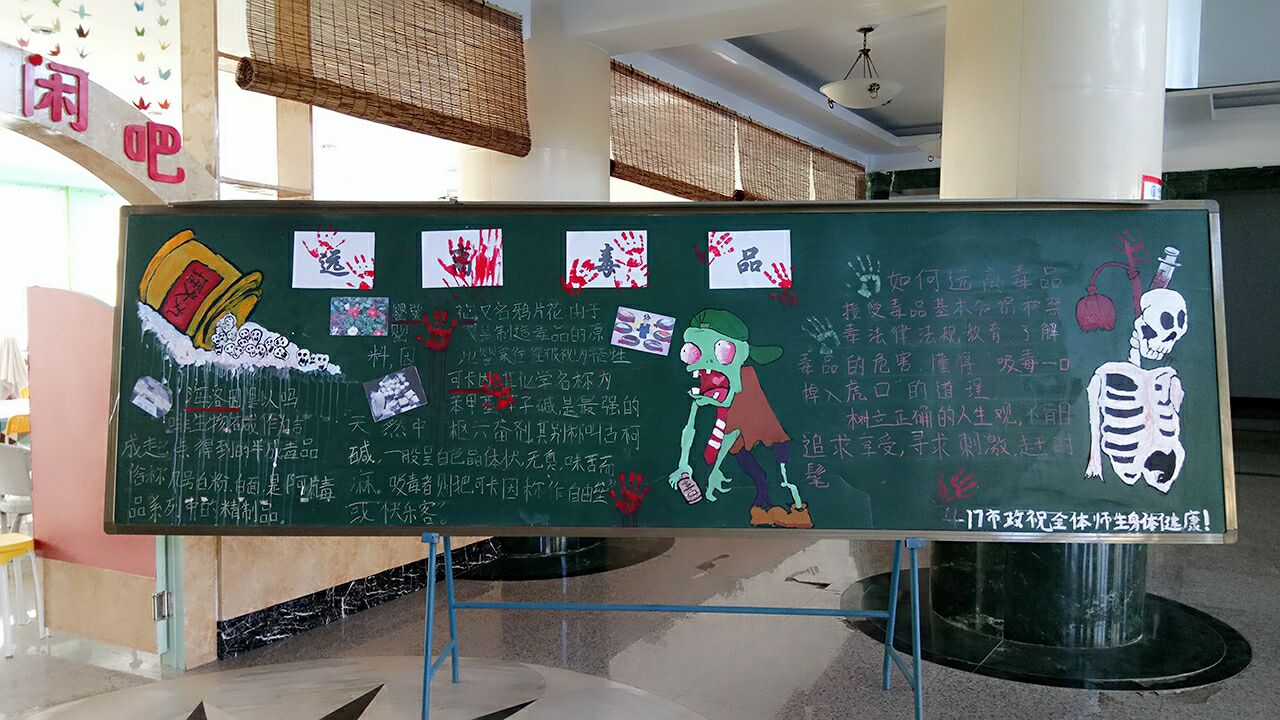 闲吧
远离毒品
花,又名鸦片花.由于
是制造毒品的原
料,因
可卡因,其化学名称为
苯甲 子碱,是最强的
天然中 奋剂,其别称叫古柯
碱,一般呈白色晶体状,无 味苦而
麻。吸毒者则把可卡因称作"自由 "
或"快乐客"。
海洛因 吗
啡生物碱作 合
成 得到的半 毒品
俗称 号 白粉、白面.是 片毒
品系列中的精制品.
如何远离毒品
接受毒品基本知识和禁
毒法律法规教育,了解
毒品的危害,懂得"吸毒一口
掉入虎口"的道理.
树立正确的人生观,不盲目
追求享受,寻求刺激,赶时
髦
17市政祝全体师生身体健康!